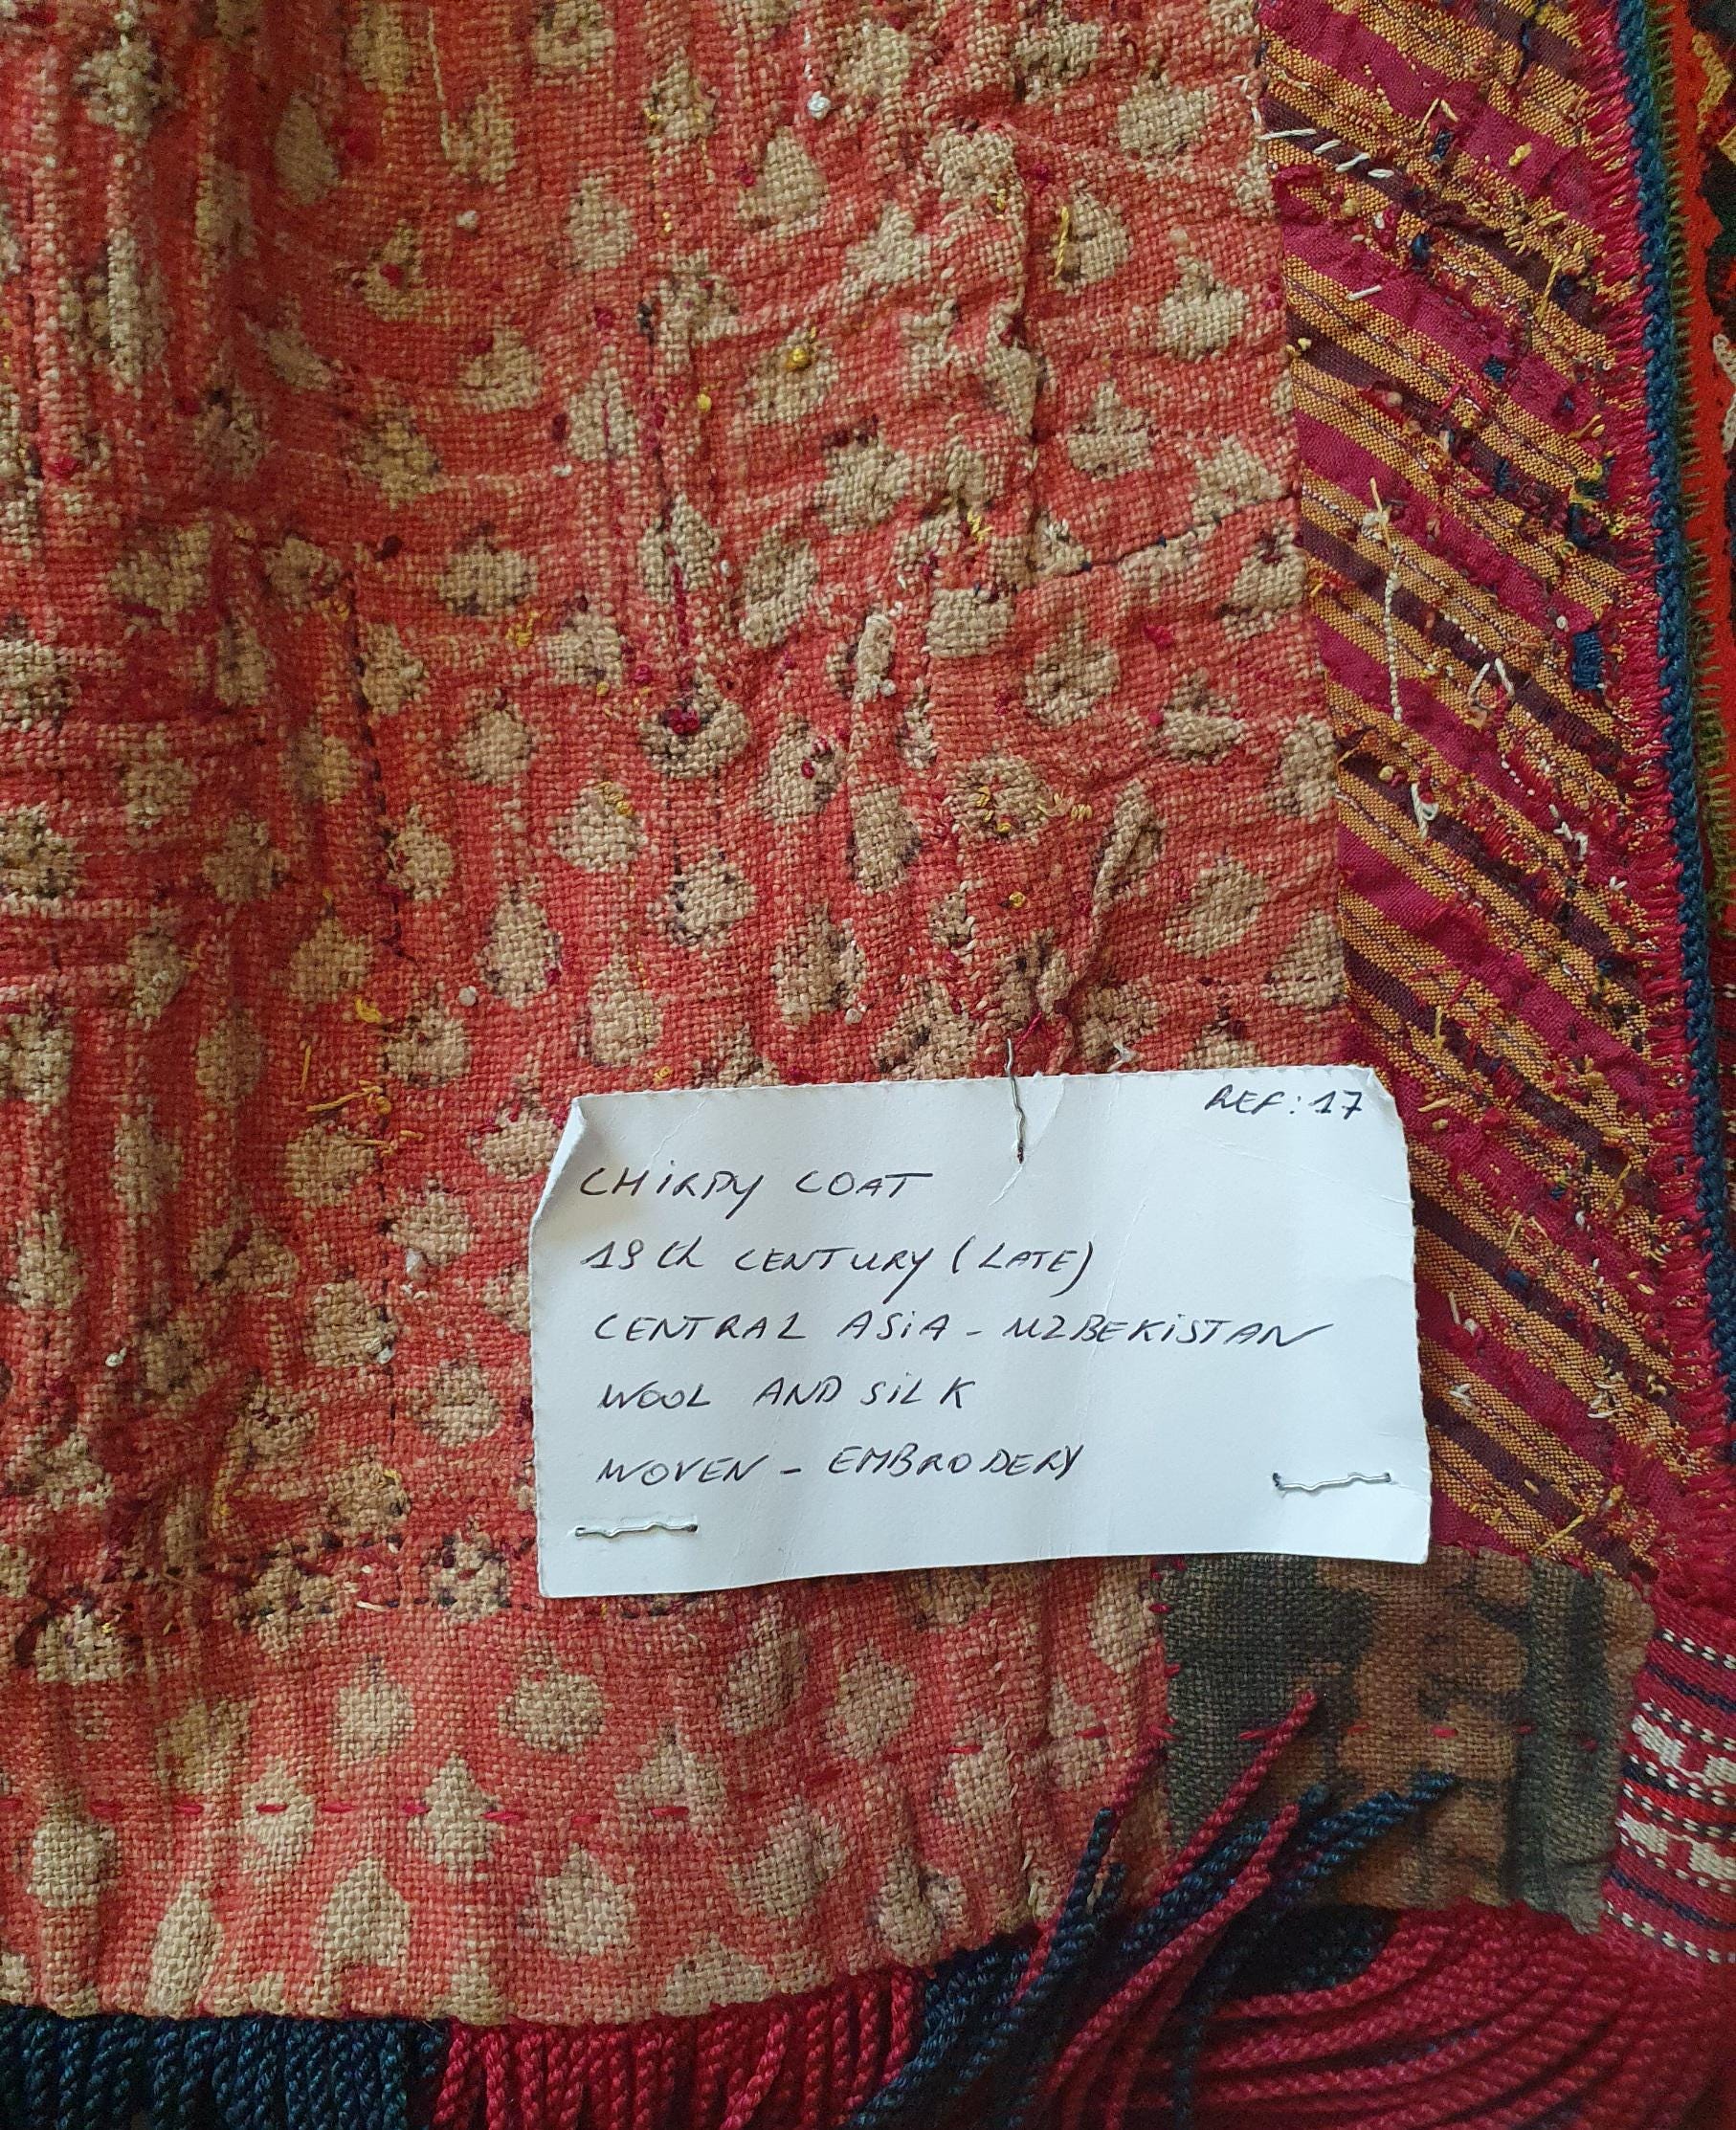 REF: 17
CHiRPY COAT
19th CENTURY (LATE)
CENTRAL ASiA - UZBEKiSTAN
WOOL AND SiLK
WOVEN - EMBRODERY